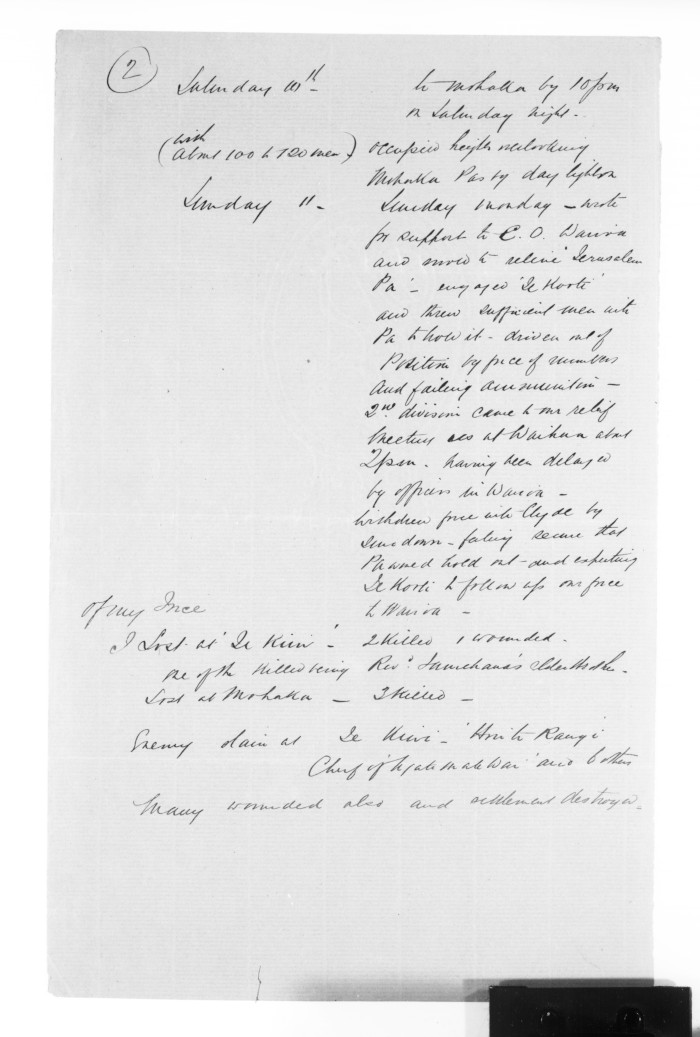 2
Saturday 10th - to Mohaka by 10 pm
on Saturday night -
(with
about 100 to 120 men) occupied heights overlooking
Mohaka Pas by day light on
Sunday 11 - Sunday monday - wrote
for support to C. O. Wairoa
and moved to relieve 'Jerusalem
Pa' - engaged 'Te Kooti'
and threw sufficient men into
Pa to hold it - driven out of
Position by force of numbers
And failing ammunition -
2nd. division came to our relief
meeting us at Waihua about
2 pm - having been delayed
by officers in Wairoa -
Withdrew force into Clyde by
sundown - feeling secure that
Pa would hold out - and expecting
Te Kooti to follow up our force
to Wairoa -
Of my Force
I Lost at 'Te Kiwi' - 2 Killed 1 wounded -
one of the Killed being Revd. Tamehana's elder
Lost at Mohaka - 2 Killed -
Enemy slain at Te Kiwi - 'Honi te Rangi
Chief of Ngatimatewai' and 6 others
Many wounded also and settlement destroyed -